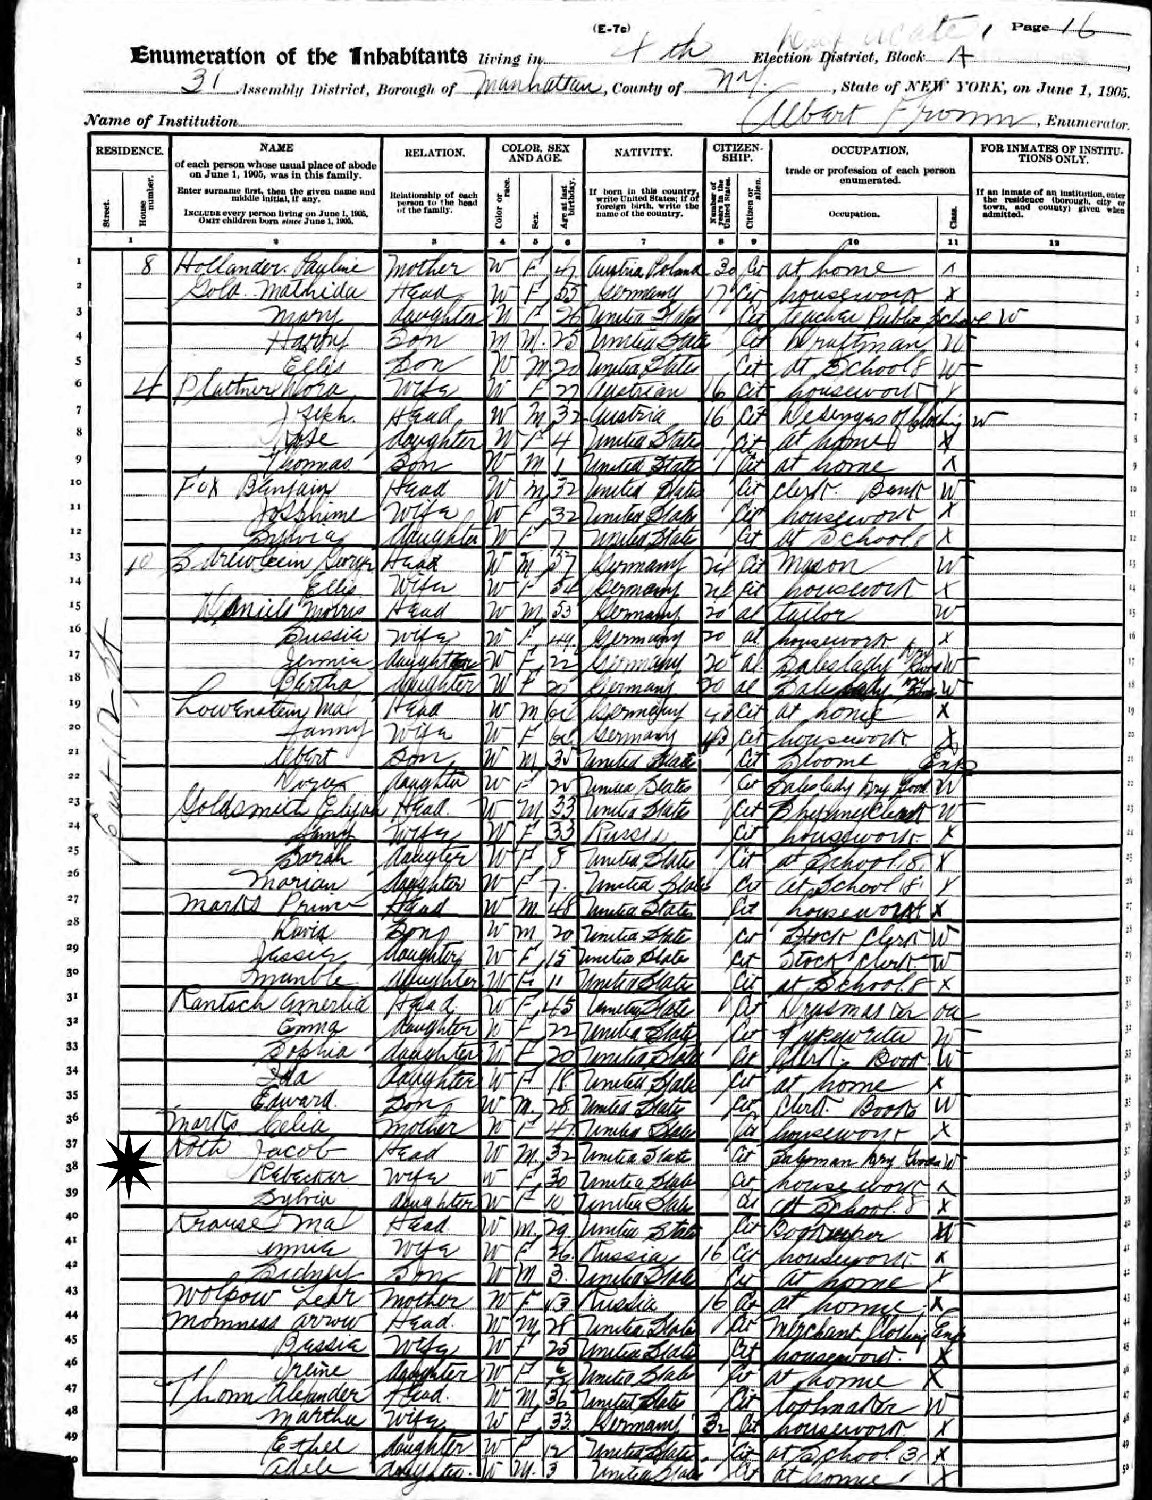 (E-7c)
Duplicate, Page 16
Enumeration of the Inhabitants living in 4th Election District, Block A
31 Assembly District, Borough of Manhattan, County of N.Y., State of NEW YORK, on June 1, 1905.
Name of Institution Albert Fromm, Enumerator.
RESIDENCE. NAME RELATION. COLOR, SEX AND AGE. NATIVITY. CITIZENSHIP. OCCUPATION, FOR INMATES OF INSTITUTIONS ONLY.
Street. House number. of each person whose usual place of abode on June 1, 1905, was in this family. Enter surname first, then the given name and middle initial, if any. INCLUDE every person living on June 1, 1905. OMIT children born since June 1, 1905. Relationship of each person to the head of the family. Color or race. Sex. Age at last birthday. If born in this country, write United States; if of foreign birth, write the name of the country. Number of years in the United States. Citizen or alien. trade or profession of each person enumerated. Occupation. Class. If an inmate of an institution, enter the residence (borough, city or town, and county) given when admitted.
1 2 3 4 5 6 7 8 9 10 11 12
1 8 Hollander Pauline Mother W F 47 Austria Poland 30 Cit at home X 1
2 Gold Mathilda Head W F 55 Germany 17 Cit housework X 2
3 Mary daughter W F 26 United States Cit teacher Public School W 3
4 Harry Son M M 25 United States Cit Draftman W 4
5 Ellis Son W M 20 United States Cit At School 8 W 5
6 4 Plattner Nora Wife W F 27 Austrian 16 Cit housework X 6
7 Joseph Head W M 32 Austria 16 Cit Designer of Clothing W 7
8 Rose daughter W F 4 United States Cit at home X 8
9 Thomas Son W M 1 United States 1 Cit at home X 9
10 Fox Benjain Head W M 32 United States Cit Clerk Bank W 10
11 Josphime Wife W F 32 United States Cit housework X 11
12 Sylvia daughter W F 7 United States Cit at School 8 X 12
13 10 George Head W M 57 Germany 24 Cit Mason W 13
14 Ellis Wife W F 54 Germany 24 Cit housework X 14
15 Daniels Morris Head W M 53 Germany 20 al tailor W 15
16 Bussia Wife W F 49 Germany 20 al housework X 16
17 Jennie daughter W F 22 Germany 20 al Saleslady Dry Goods W 17
18 Bertha daughter W F 20 Germany 20 al Saleslady Dry Goods W 18
19 Lowenstein Ma Head W M Germany Cit at home X 19
20 Fanny Wife W F Germany 43 Cit housework X 20
21 Albert Son W M 35 United States Cit Emp 21
22 daughter W F 20 United States Cit Saleslady Dry Good W 22
23 Goldsmith Head W M 33 United States Cit Shipping Clerk W 23
24 Fanny Wife W F 33 Russia Cit housework X 24
25 Sarah daugter W F 8 United States Cit at School 8 X 25
26 Marian daughter W F 7 United States Cit At School 8 X 26
27 Marks Prince Head W M 48 United States Cit housework X 27
28 David Son W M 20 United States Cit Stock Clerk W 28
29 Jessie daughter W F 15 United States Cit Stock Clerk W 29
30 daughter W F 11 United States Cit at School 8 X 30
31 Kantsch Amerlia Head W F 45 United State Cit Dressmaker 31
32 Emma daughter W F 22 United States Cit Typewriter W 32
33 Sophia daughter W F 20 United States Cit Clerk Book W 33
34 Ida daughter W F 18 United States Cit at home X 34
35 Edward Son W M 28 United States Cit Clerk Books W 35
36 Marks Celia Mother W F 47 United States Cit housework X 36
37 Roth Jacob Head W M 32 United State Cit Salesman Dry Goods W 37
38 Rebecker Wife W F 30 United States Cit housework X 38
39 Sylvia daughter W F 10 United States Cit At School 8 X 39
40 Krause Ma Head W M 29 United States Cit Bookkeeper W 40
41 Wife W F 26 Russia 16 Cit housework X 41
42 Sidney Son W M 3 United States Cit at home X 42
43 Wolpow Lear Mother W F 43 Russia 16 Cit at home X 43
44 Head W M 28 United States Cit Merchant Clothing Emp 44
45 Bessie Wife W F 25 United States Cit housework X 45
46 Irene daughter W F United States Cit at home X 46
47 Thorn Alexander Head W M 36 United States Cit toolmaker W 47
48 Martha Wife W F 33 Germany 32 Cit housework X 48
49 Ethel daughter W F 12 United States Cit at School 3 X 49
50 Adele daughter W M 3 United States Cit at home X 50
East 112 St